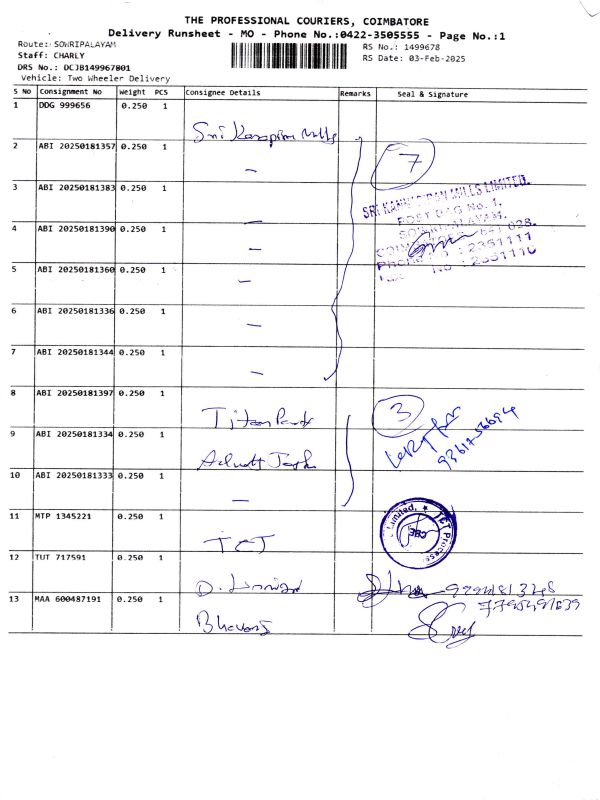 THE PROFESSIONAL COURIERS, COIMBATORE
Delivery Runsheet - MO - Phone No.:0422-3505555 - Page No.:1
Route: SOWRIPALAYAM
RS No.: 1499678
Staff: CHARLY
RS Date: 03-Feb-2025
DRS No.: DCJB149967801
Vehicle: Two Wheeler Delivery
S No Consignment No Weight PCS Consignee Details Remarks Seal & Signature
1 DDG 999656 0.250 1
Sri
2 ABI 20250181357 0.250 1
7
3 ABI 20250181383 0.250 1
SRI MILLS LIMITED.
POST BAG No. 1,
4 ABI 20250181390 0.250 1
SOWRIPALAYAM,
641 028.
: 2351111
5 ABI 20250181360 0.250 1
: 2351110
6 ABI 20250181336 0.250 1
7 ABI 20250181344 0.250 1
8 ABI 20250181397 0.250 1
Titan
3
9 ABI 20250181334 0.250 1
10 ABI 20250181333 0.250 1
11 MTP 1345221 0.250 1
TCT
Limited, ★ TCT Process
CBE
12 TUT 717591 0.250 1
D.
13 MAA 600487191 0.250 1